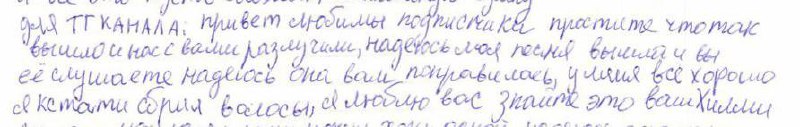 для ТГ КАНАЛА: привет любимы подписчики простите что так
вышло и нас с вами разлучили, надеюсь моя песня вышла и вы
её слушаете надеюсь она вам понравилась, у меня всё хорошо
я кстати сбрил волосы, я люблю вас знайте это ваш Хилми